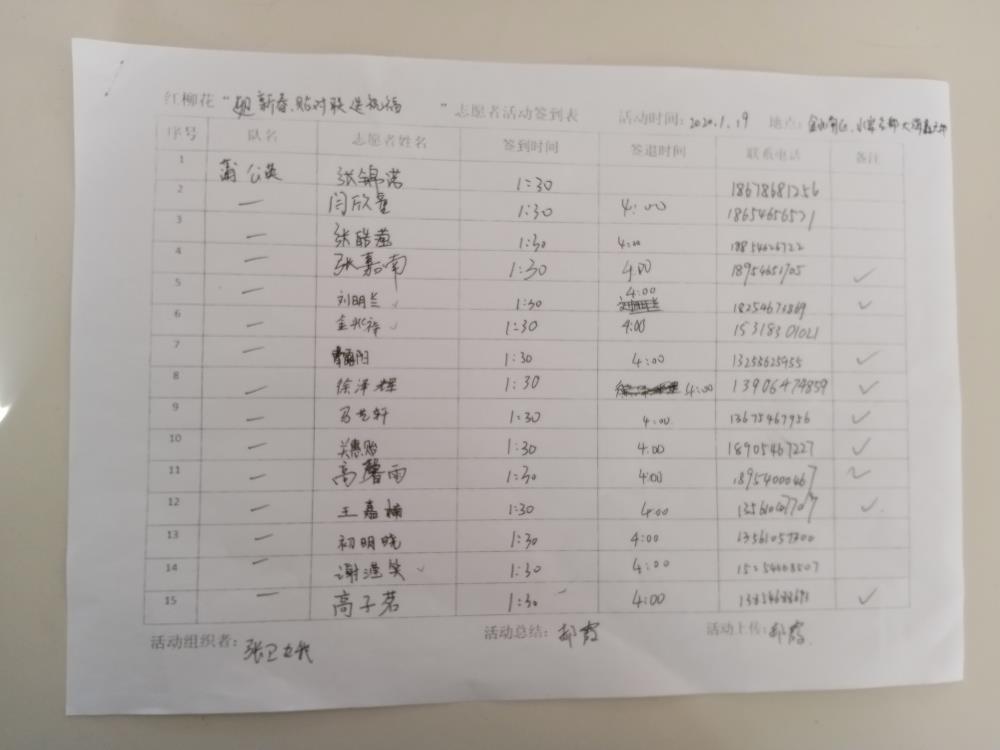 红柳花“迎新春、贴对联送祝福”志愿者活动签到表 活动时间：2020.1.19 地点：
序号 队名 志愿者姓名 签到时间 签退时间 联系电话 备注
1 蒲公英 张锦诺 1:30 18678681256
2 — 闫欣量 1:30 4:00 18654656521
3 — 张皓 1:30 4:00
4 — 张嘉南 1:30 4:00 18954651705 ✓
5 — 刘明兰 ✓ 1:30 4:00 ✓
6 — 金兆祥 ✓ 1:30 4:00 15318301021
7 — 阳 1:30 4:00 13253625955 ✓
8 — 徐泽辉 1:30 4:00 13906479859 ✓
9 — 马艺轩 1:30 4:00 13675467956 ✓
10 — 关惠贻 1:30 4:00 18905467227 ✓
11 — 高馨雨 1:30 4:00 18954000467 ✓
12 — 王嘉楠 1:30 4:00 ✓
13 — 初明晓 1:30 4:00
14 — 谢滢笑 ✓ 1:30 4:00
15 — 高子茗 1:30 4:00 ✓
活动组织者： 张卫 活动总结：郝霞 活动上传：郝霞